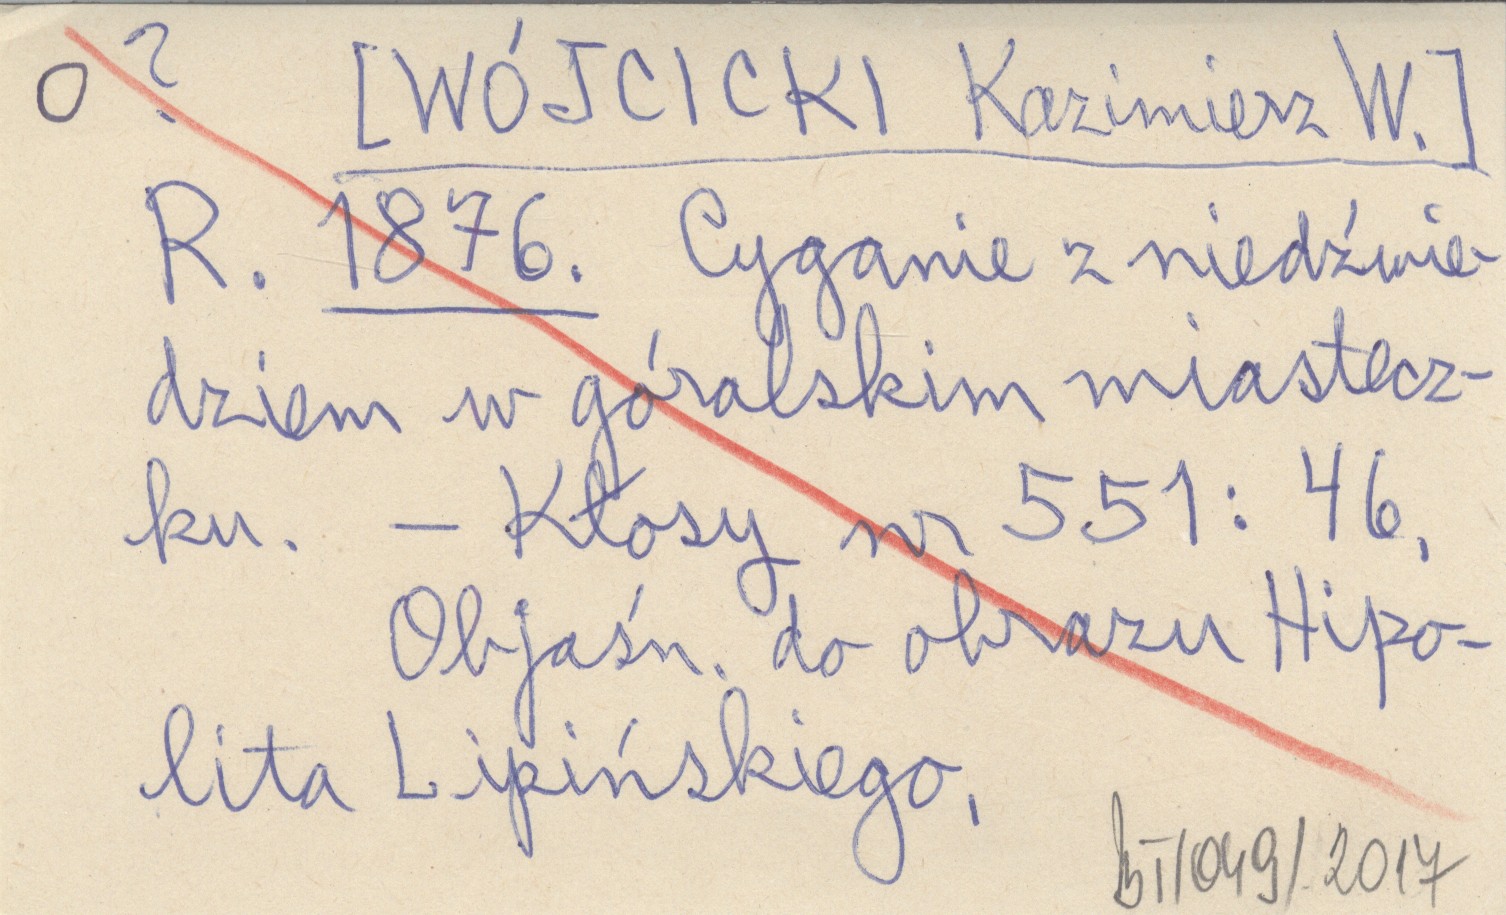 O ? [WÓJCICKI Kazimierz W.]
R. 1876. Cyganie z niedźwie-
dziem w góralskim miastecz-
ku. – Kłosy nr 551: 46,
Objaśn. do obrazu Hipo-
lita Lipińskiego,
BI/049/2017